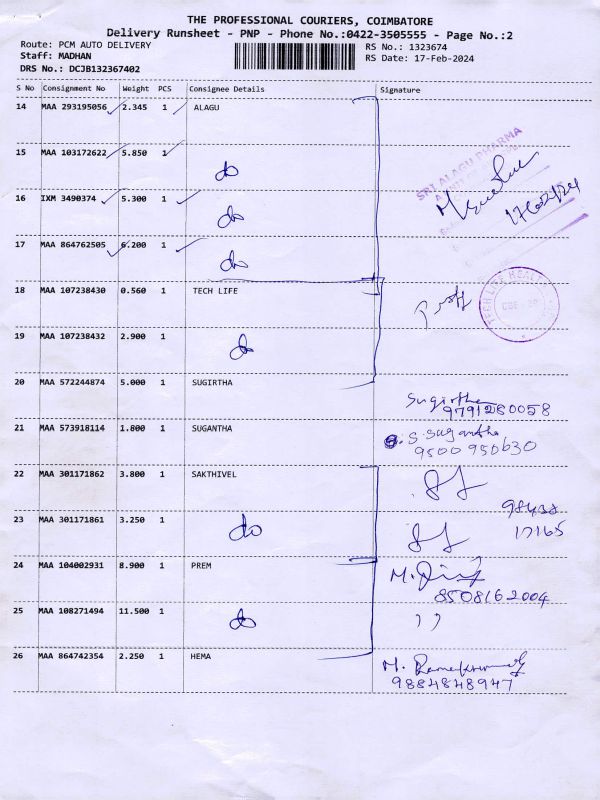 THE PROFESSIONAL COURIERS, COIMBATORE
Delivery Runsheet - PNP - Phone No.:0422-3505555 - Page No.:2
Route: PCM AUTO DELIVERY
Staff: MADHAN
DRS No.: DCJB132367402
RS No.: 1323674
RS Date: 17-Feb-2024
S No Consignment No Weight PCS Consignee Details Signature
14 MAA 293195056 2.345 1 ALAGU
SRI ALAGU PHARMA
15 MAA 103172622 5.850 1 do
17/02/24
16 IXM 3490374 5.300 1 do
17 MAA 864762505 6.200 1 do
18 MAA 107238430 0.560 1 TECH LIFE
TECH LIFE
19 MAA 107238432 2.900 1 do
20 MAA 572244874 5.000 1 SUGIRTHA Sugirtha
9791280058
21 MAA 573918114 1.800 1 SUGANTHA S. Sugantha
9500950630
22 MAA 301171862 3.800 1 SAKTHIVEL
98438
17165
23 MAA 301171861 3.250 1 do
24 MAA 104002931 8.900 1 PREM
8508162004
25 MAA 108271494 11.500 1 do ))
26 MAA 864742354 2.250 1 HEMA
9884848947